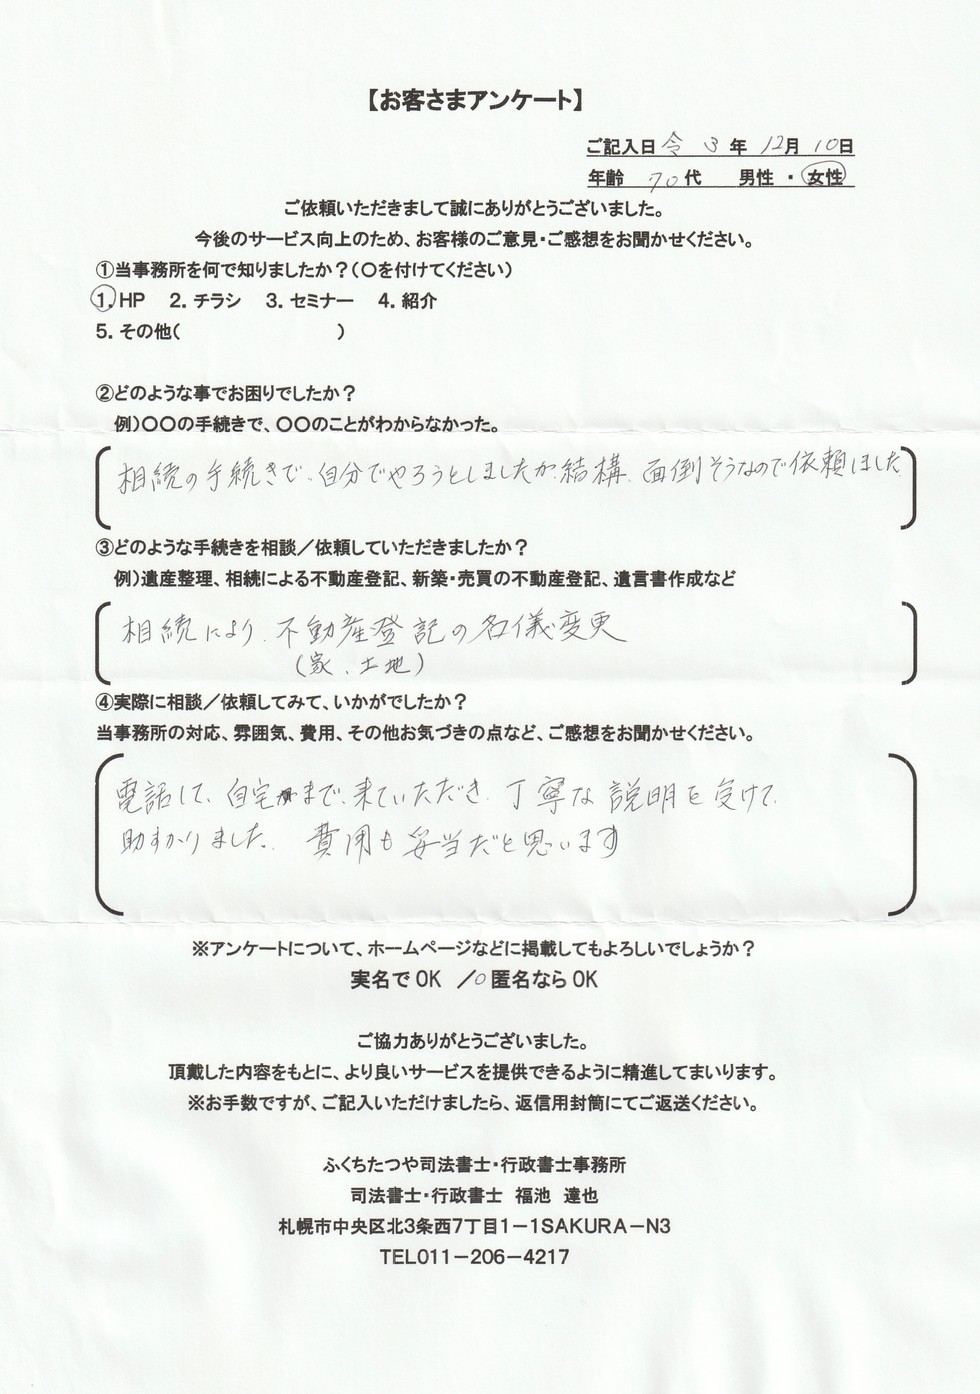 【お客さまアンケート】
ご記入日 令 3 年 12月 10日
年齢 70代 男性 ・ 女性
ご依頼いただきまして誠にありがとうございました。
今後のサービス向上のため、お客様のご意見・ご感想をお聞かせください。
①当事務所を何で知りましたか？（○を付けてください）
1. HP 2. チラシ 3. セミナー 4. 紹介
5. その他（ ）
②どのような事でお困りでしたか？
例）○○の手続きで、○○のことがわからなかった。
相続の手続きで、自分でやろうとしましたが、結構、面倒そうなので依頼しました
③どのような手続きを相談／依頼していただきましたか？
例）遺産整理、相続による不動産登記、新築・売買の不動産登記、遺言書作成など
相続により、不動産登記の名儀変更
（家、土地）
④実際に相談／依頼してみて、いかがでしたか？
当事務所の対応、雰囲気、費用、その他お気づきの点など、ご感想をお聞かせください。
電話して、自宅まで、来ていただき、丁寧な説明を受けて、
助すかりました。 費用も妥当だと思います
※アンケートについて、ホームページなどに掲載してもよろしいでしょうか？
実名でOK ／○匿名ならOK
ご協力ありがとうございました。
頂戴した内容をもとに、より良いサービスを提供できるように精進してまいります。
※お手数ですが、ご記入いただけましたら、返信用封筒にてご返送ください。
ふくちたつや司法書士・行政書士事務所
司法書士・行政書士 福池 達也
札幌市中央区北3条西7丁目1－1SAKURA－N3
TEL011－206－4217